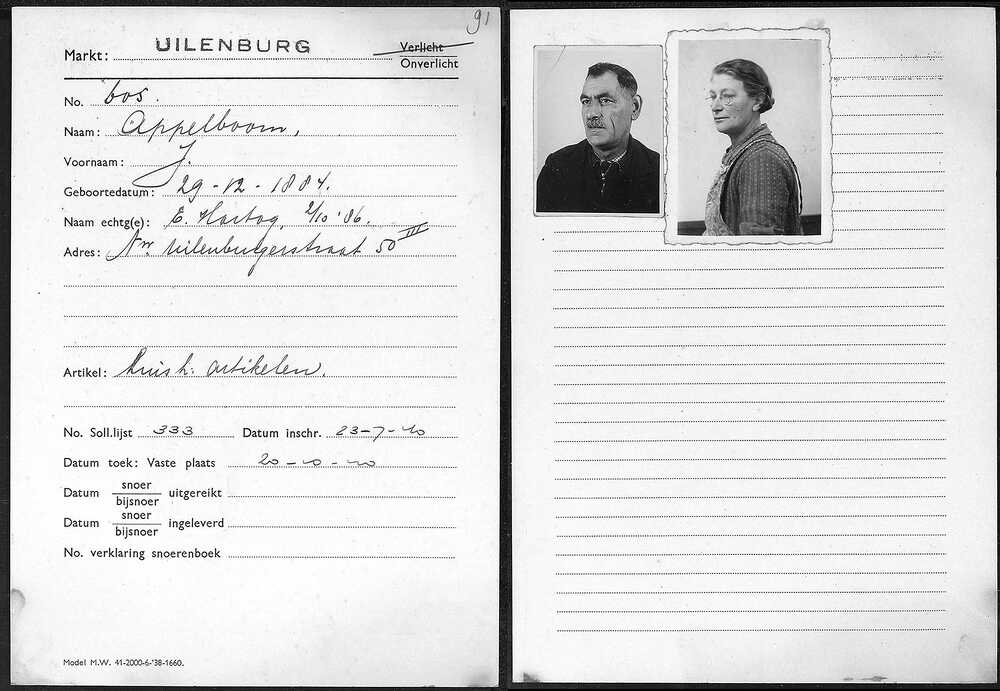 91
Markt: UILENBURG Verlicht
Onverlicht
No. 60s.
Naam: Appelboom,
Voornaam: J.
Geboortedatum: 29-12-1884.
Naam echtg(e): E. Hartog, 2/10 '86.
Adres: Nw. Uilenburgerstraat 50 III
Artikel: huish. artikelen.
No. Soll.lijst 333 Datum inschr. 23-7-40
Datum toek: Vaste plaats 20-10-40
Datum snoer/bijsnoer uitgereikt
Datum snoer/bijsnoer ingeleverd
No. verklaring snoerenboek
Model M.W. 41-2000-6-'38-1660.